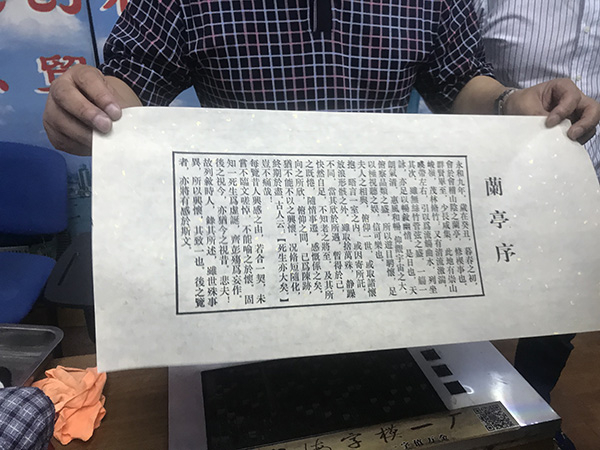 蘭亭序
永和九年,歲在癸丑,暮春之初,
會於會稽山陰之蘭亭,修禊事也。
群賢畢至,少長咸集。此地有崇山
峻嶺,茂林修竹;又有清流激湍,
暎帶左右,引以為流觴曲水,列坐
其次。雖無絲竹管弦之盛,一觴一
詠,亦足以暢敘幽情。是日也,天
朗氣清,惠風和暢。仰觀宇宙之大,
俯察品類之盛,所以遊目騁懷,足
以極視聽之娛,信可樂也。
夫人之相與,俯仰一世,或取諸懷
抱,晤言一室之內;或因寄所託,
放浪形骸之外。雖取捨萬殊,靜躁
不同,當其欣於所遇,暫得於己,
快然自足,不知老之將至。及其所
之既倦,情隨事遷,感慨係之矣。
向之所欣,俯仰之間,已為陳跡,
猶不能不以之興懷。況修短隨化,
終期於盡。古人云:『死生亦大矣。』
豈不痛哉!
每覽昔人興感之由,若合一契,未
嘗不臨文嗟悼,不能喻之於懷。固
知一死生為虛誕,齊彭殤為妄作。
後之視今,亦猶今之視昔。悲夫!
故列敘時人,錄其所述,雖世殊事
異,所以興懷,其致一也。後之覽
者,亦將有感於斯文。
字模一厂